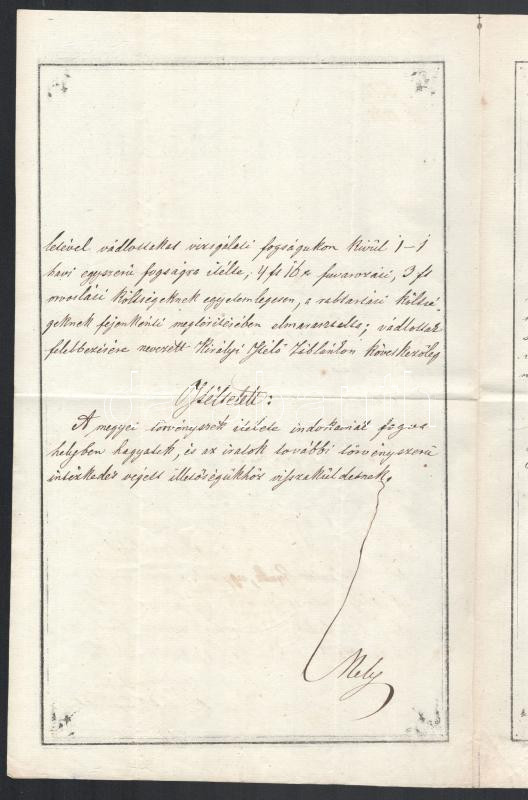 letével vádlottakat vizsgálati fogságukon kivül 1–1
havi egyszerü fogságra itélte, 4 ft 16 x fuvarozási, 3 ft
orvoslási költségeknek egyetemlegesen, a rabtartási költsé-
geknek fejenkénti megtérítésében elmarasztalta; vádlottak
felebbezésére nevezett Királyi Itélő Táblánkon következőleg
Itéltetett:
A megyei törvényszék itélete indokainál fogva
helyben hagyatik, és az iratok további törvényszerü
intézkedés végett illetőségükhöz visszaküldetnek.
Mely